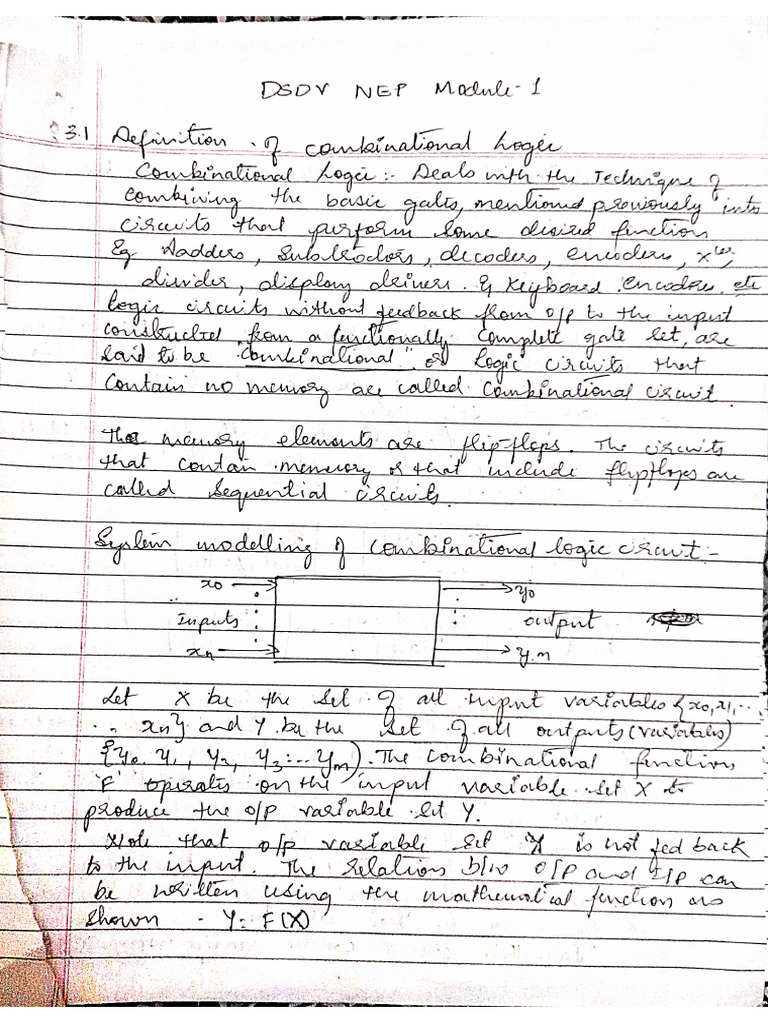 DSDV NEP Module-1
3.1 Definition of Combinational Logic
Combinational Logic:- Deals with the Technique of
combining the basic gates, mentioned previously into
circuits that perform some desired function
Eg Aadders, Subtractors, decoders, encoders, xier,
divider, display drivers & Keyboard encoders, etc
logic circuits without feedback from o/p to the input
constructed from a functionally complete gate set, are
said to be "combinational" or Logic circuits that
contain no memory are called combinational circuit.
The memory elements are flip-flops. The circuits
that contain memory or that include flipflops are
called Sequential circuits.
System modelling of combinational logic circuit:-
x0 y0
Inputs output
xn ym
Let X be the set of all input variables {x0, x1, ..
.. xn} and Y be the set of all outputs (variables)
{y0, y1, y2, y3 ... ym). The combinational function
'F' operates on the input variable set X to
produce the o/p variable set Y.
Note that o/p variable set Y is not fed back
to the input. The relations b/w o/p and I/P can
be written using the mathematical function as
shown - Y= F(X)